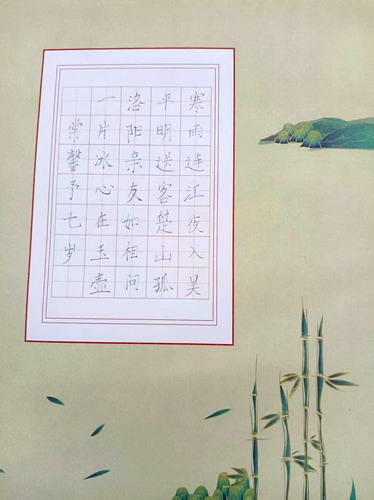 寒雨连江夜入吴
平明送客楚山孤
洛阳亲友如相问
一片冰心在玉壶
常馨予七岁